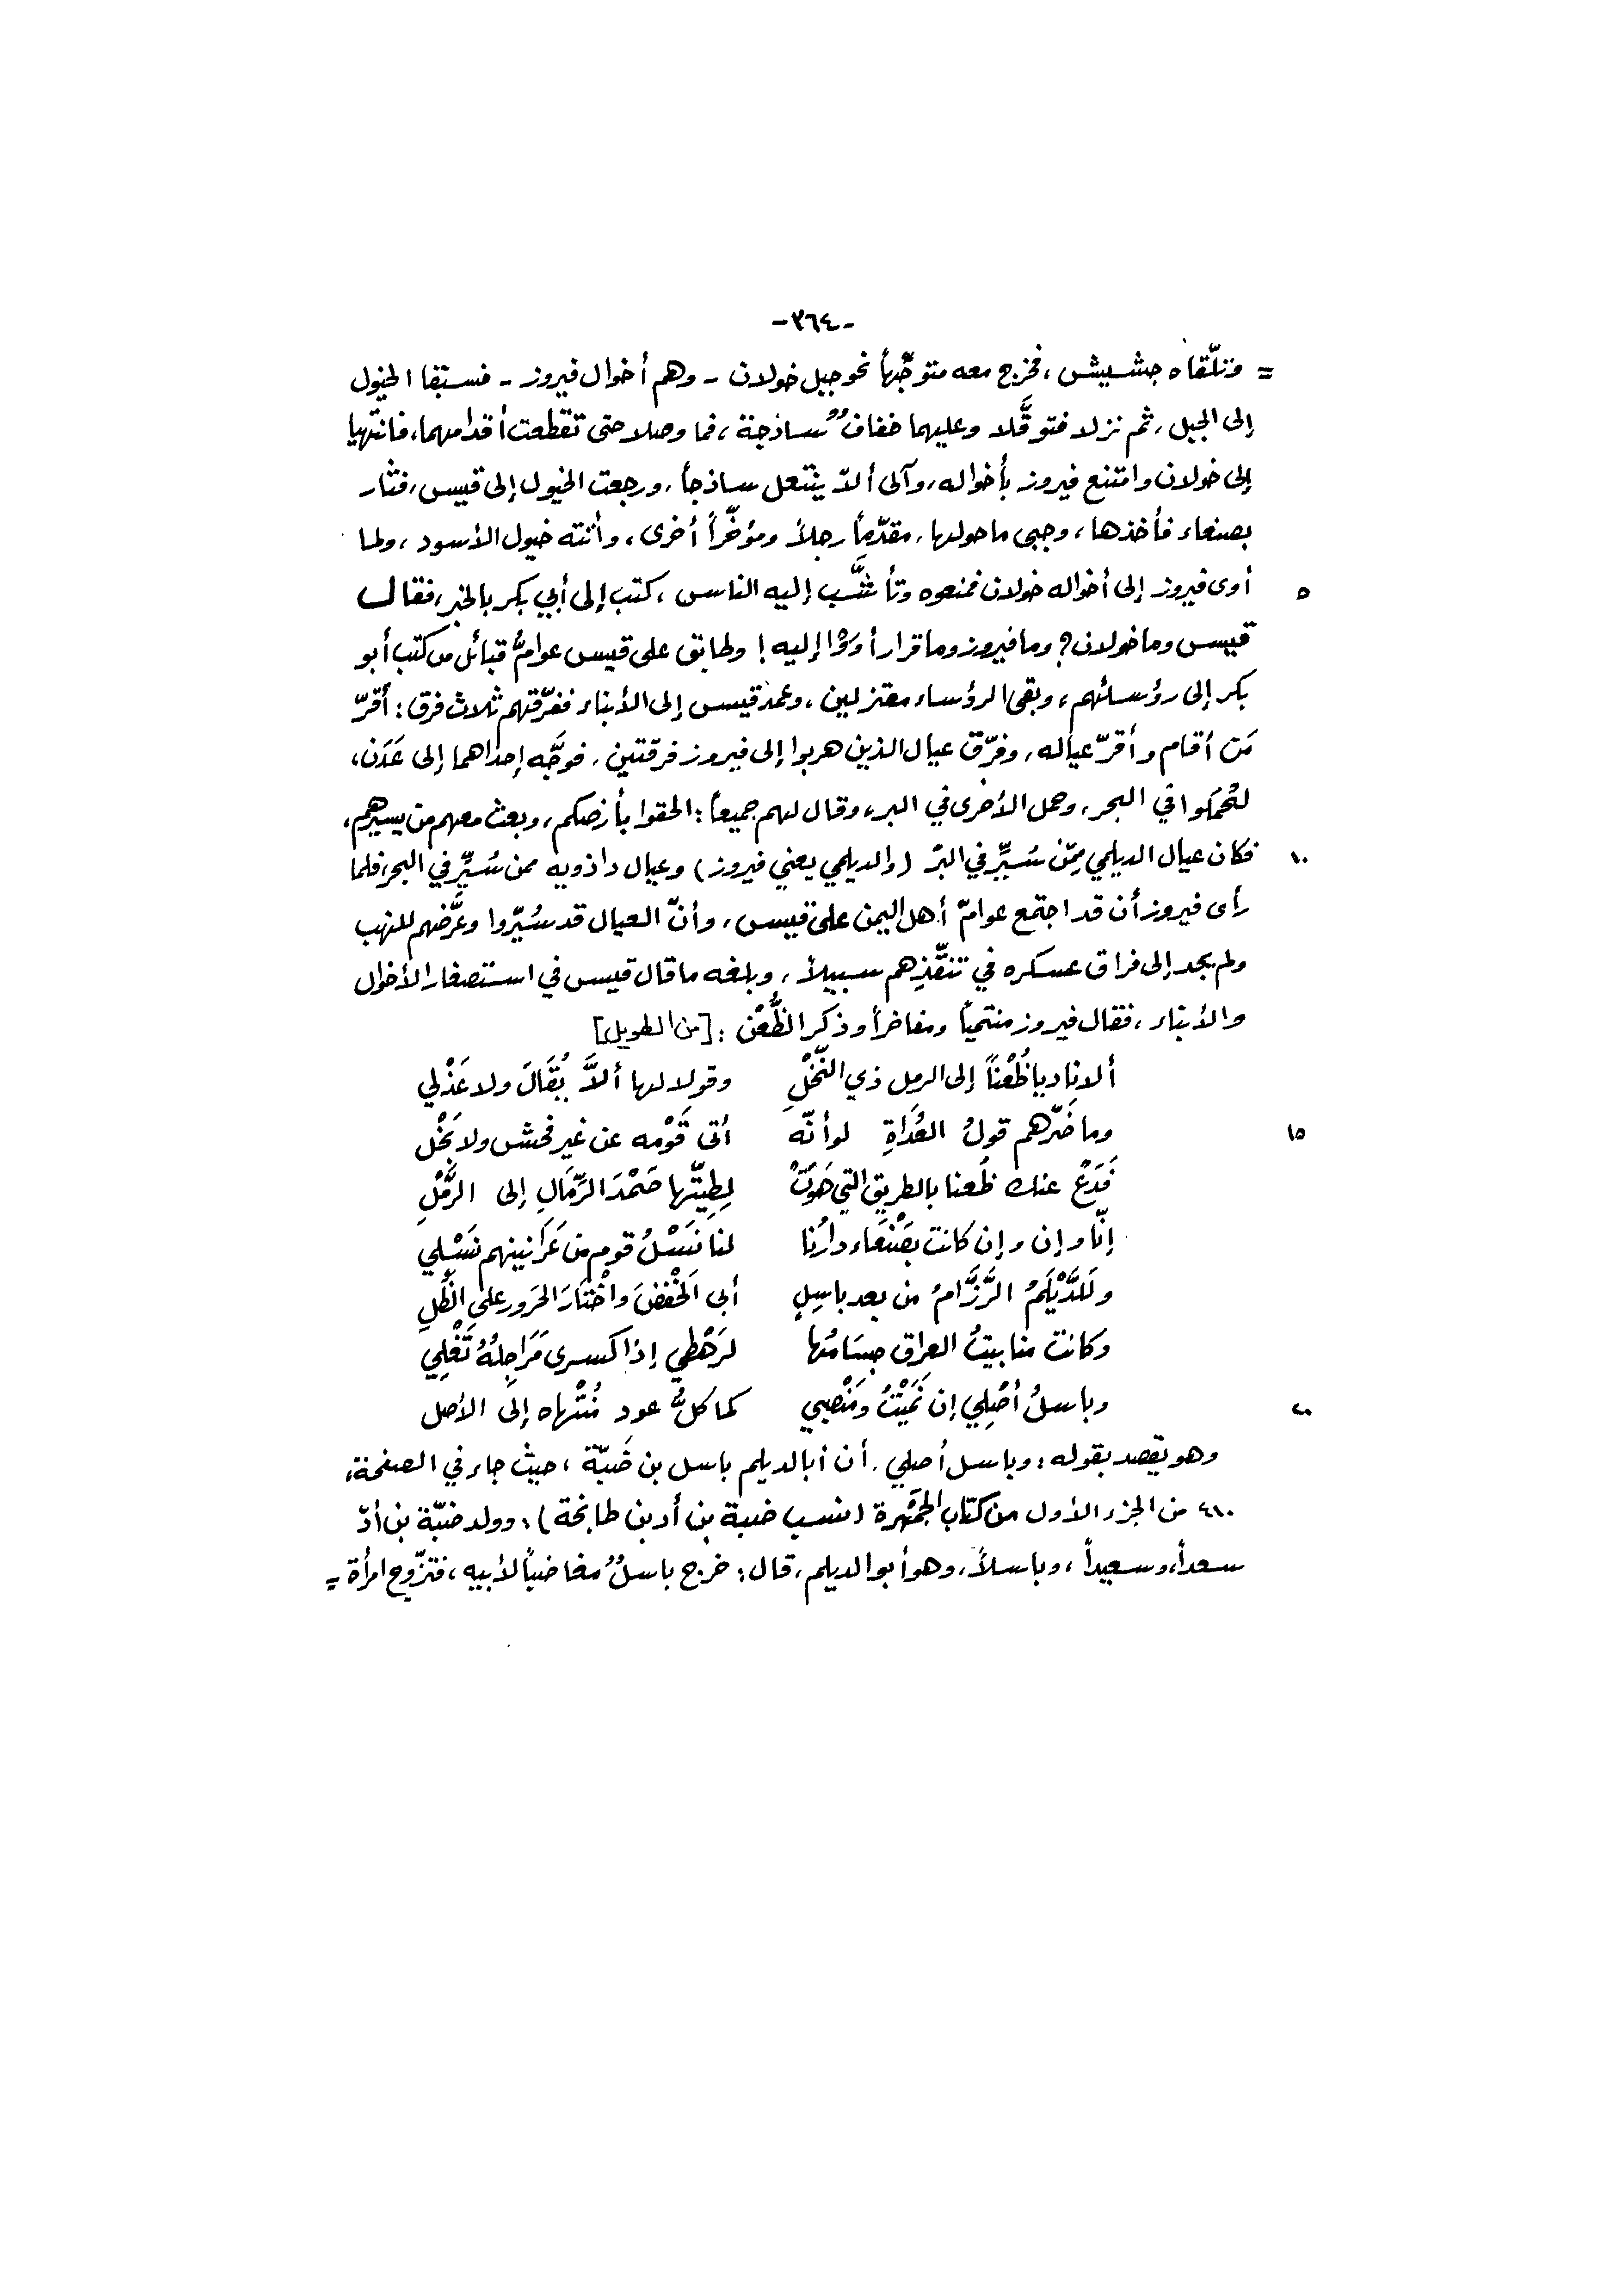 -٣٦٤-
= وتلّقاه جشيش، فخرج معه متوجّهاً نحو جبل خولان - وهم أخوال فيروز - فسبقا الخيول
إلى الجبل، ثم نزلا فتوقَّلا وعليهما خفافٌ ساذجة، فما وصلا حتى تقطعت أقدامهما، فانتهيا
إلى خولان وامتنع فيروز بأخواله، وآلى ألاّ ينتعل ساذجاً، ورجعت الخيول إلى قيس، فثار
بصنعاء فأخذها، وجبى ماحولها، مقدّماً رجلاً ومؤخّراً أخرى، وأتته خيول الأسود، ولما
أوى فيروز إلى أخواله خولان فمنعوه وتأشَّب إليه الناس، كتب إلى أبي بكر بالخبر، فقال
٥
قيس وما خولان؟ وما فيروز وما قرار أوَوْا إليه! وطابق على قيس عوامُّ قبائل من كتب أبو
بكر إلى رؤسائهم، وبقى الرؤساء معتزلين، وعمد قيس إلى الأبناء ففرّقهم ثلاث فرق: أقرّ
مَن أقام وأقرّ عياله، وفرّق عيال الذين هربوا إلى فيروز فرقتين، فوجَّه إحداهما إلى عَدَن،
لتُحمَلوا في البحر، وحمل الأخرى في البر، وقال لهم جميعاً: الحقوا بأرضكم، وبعث معهم من يسيرهم،
فكان عيال الديلمي مِمّن سُيِّر في البرّ (والديلمي يعني فيروز) وعيال داذويه ممن سُيِّر في البحر، فلما
١٠
رأى فيروز أن قد اجتمع عوامّ أهل اليمن على قيس، وأنّ العيال قد سُيّروا وعرَّضهم للنهب
ولم يجد إلى فراق عسكره في تنقّذِهم سبيلاً، وبلغه ما قال قيس في استصغار الأخوال
والأبناء، فقال فيروز منتمياً ومفاخراً وذكر الظُّعْن: [من الطويل]
ألا ناديا ظُعْناً إلى الرمل ذي النَّخْلِ وقولا لها ألاَّ يُقَالَ ولا عَذْلي
وما ضَرّهم قولُ العُدَاةِ لو أنّه أتى قَوْمه عن غير فحش ولا بَخْل
١٥
فَدَعْ عنك ظُعنا بالطريق التي هَوَتْ لِطِيّتها صَمْدَ الرِّمَالِ إلى الرَّمْلِ
إنّا وإن وإن كانت بصَنْعَاء دارُنا لنا نَسْلُ قوم من عَرَانينهم نَسْلي
ولَلدَّيْلَمُ الرَّزَّامُ من بعد باسِلٍ أبى الخَفْضَ واخْتَارَ الحَرور على الظِّلِ
وكانت منا بيتُ العراق جِسَامُها لرَهْطي إذا كسرى مَرَاجِلُهُ تَغْلِي
وباسلُ أصْلِي إن نَمَيْتُ ومَنْصبي كما كلُّ عود مُنْتَهاه إلى الأصل
٢٠
وهو يقصد بقوله: وباسل أصلي، أن أبا الديلم باسل بن ضَبّة، حيث جاء في الصفحة،
٤١٠ من الجزء الأول من كتاب الجَمْهرة (نسب ضبة بن أد بن طابخة): وولد ضبّة بن أدّ
سعداً، وسعيداً، وباسلاً، وهو أبو الديلم، قال: خرج باسلٌ مغاضباً لأبيه، فتزّوج امرأة =